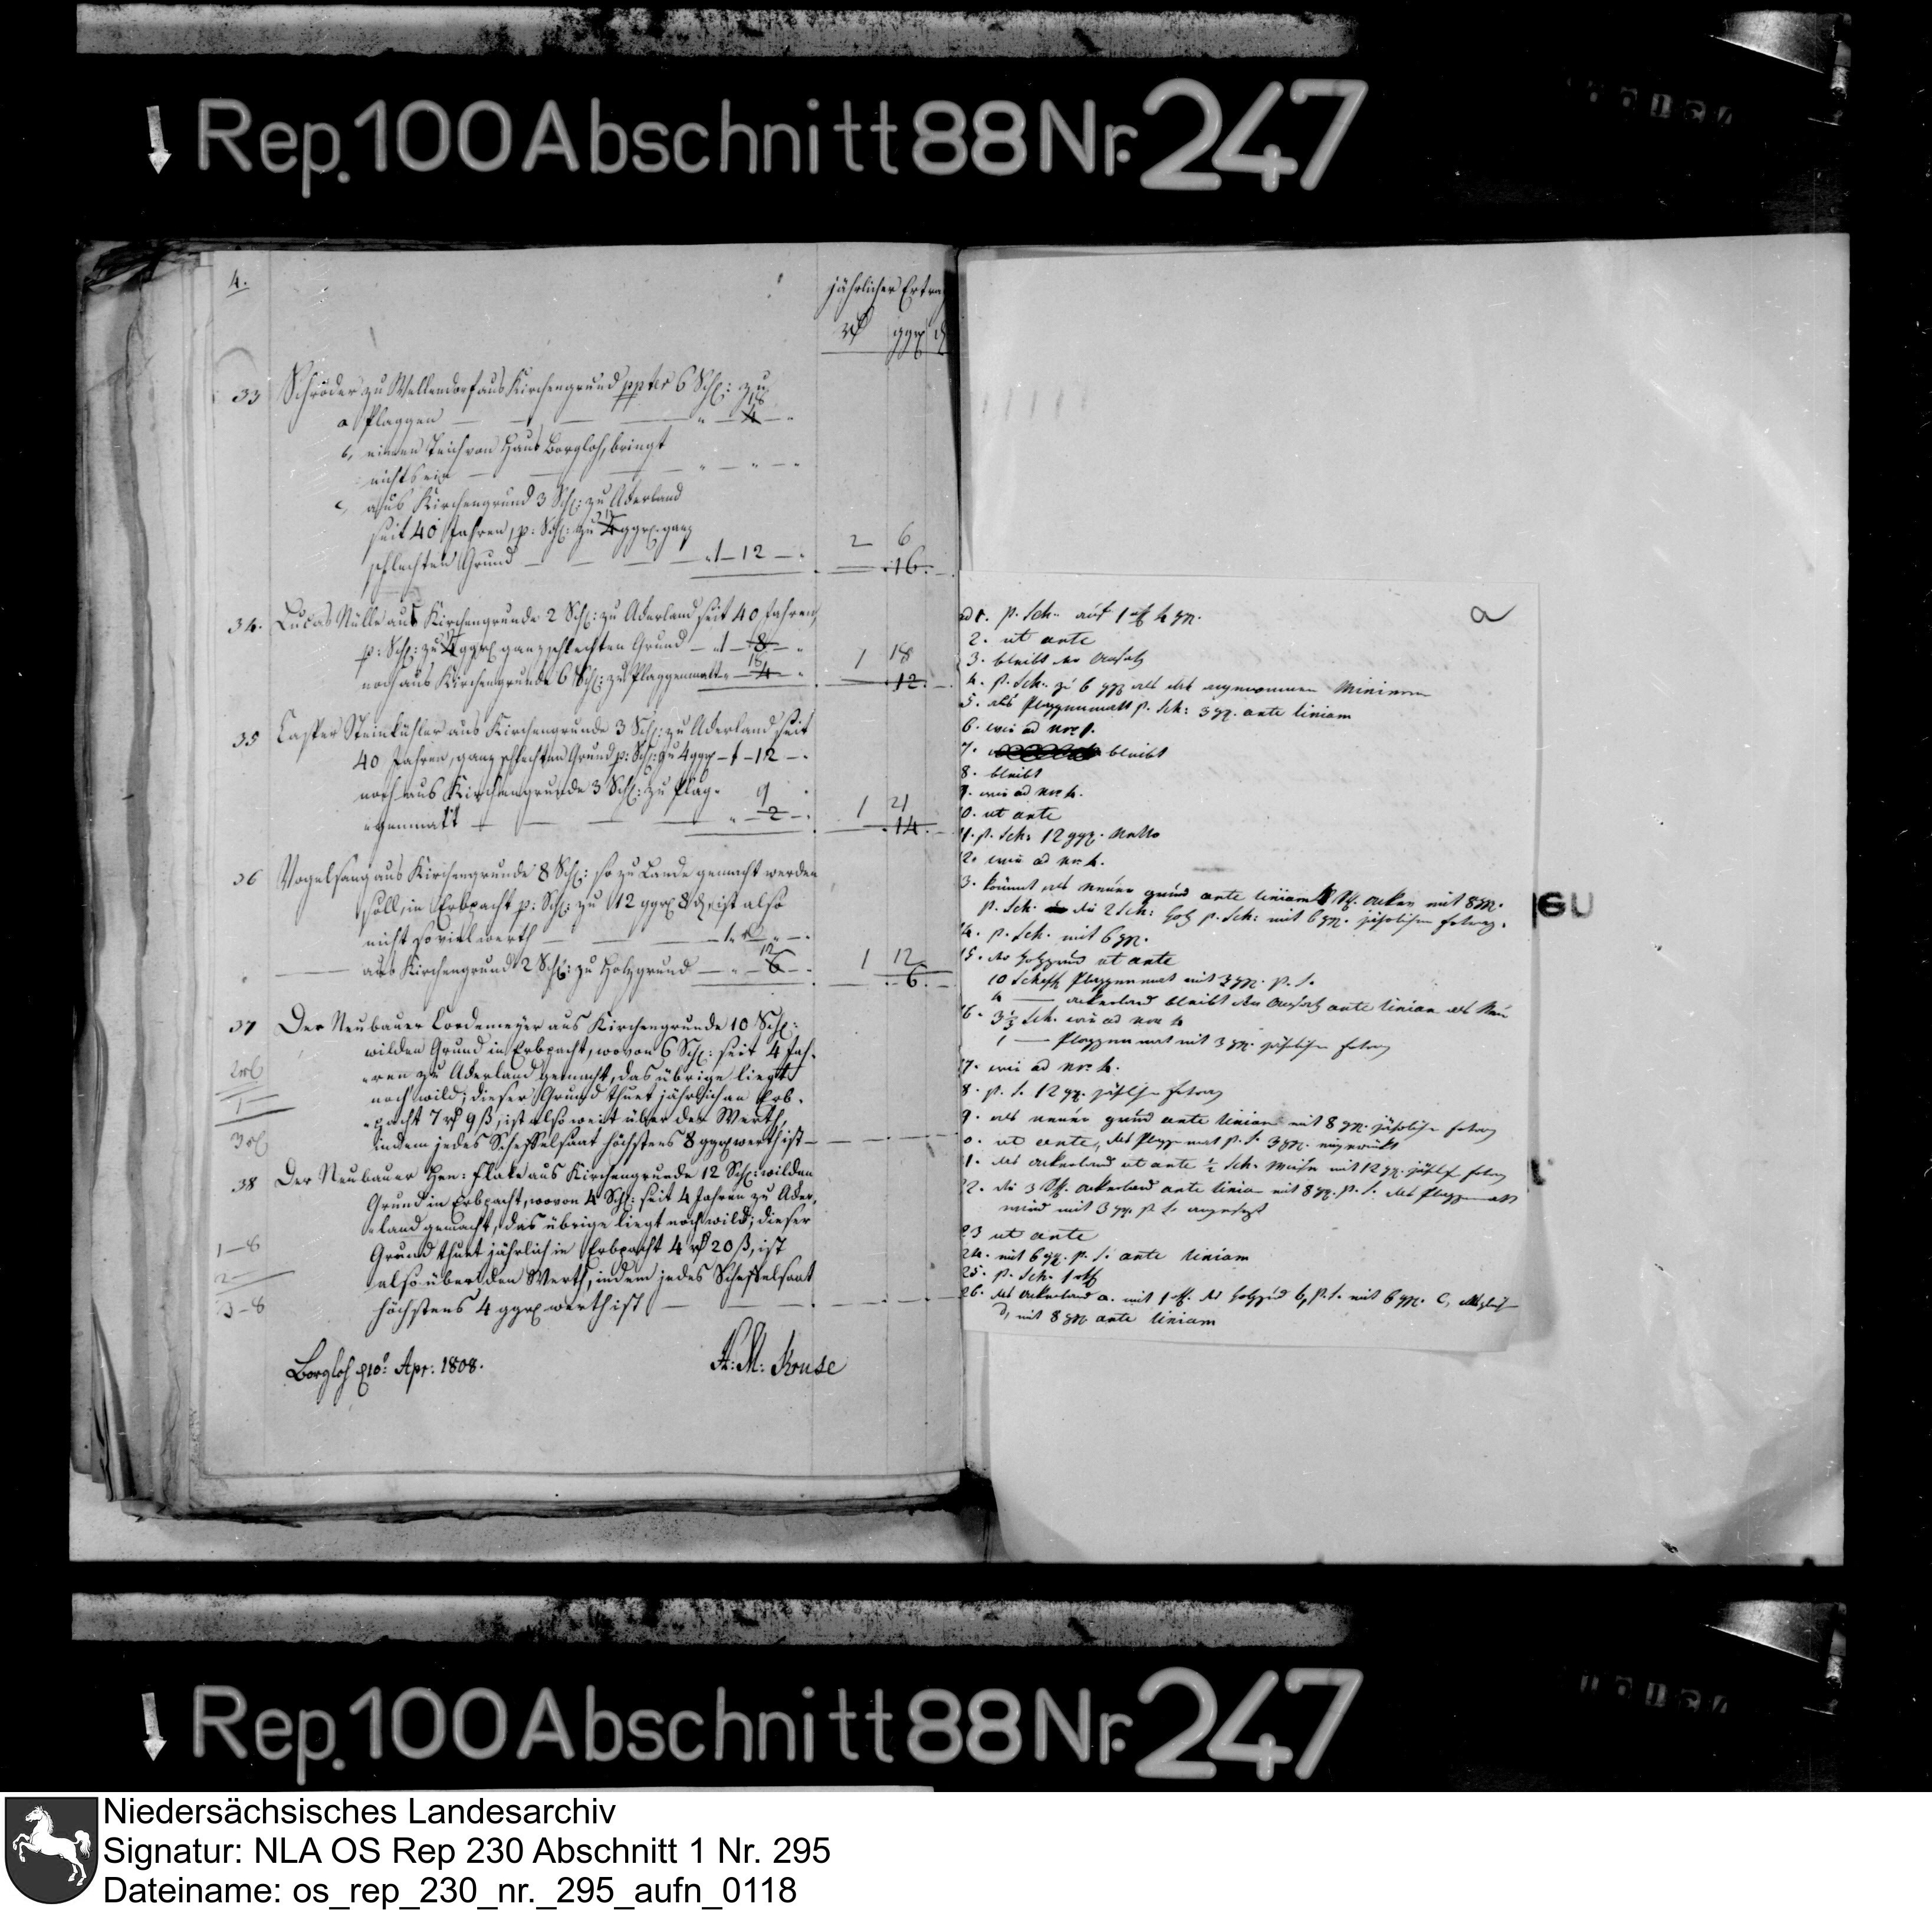 Rep. 100 Abschnitt 88 Nr. 247
4.
jährlicher Ertrag
rt ggr d
33 Schröder zu Wellendorf aus Kirchengrund ppter 6 Sch: zu
a Plaggen — " 18 4 — "
b, einen Teich von Haus Borgloh, bringt
nichts ein — " — " — "
c, aus Kirchengrund 3 Sch: zu Ackerland
seit 40 Jahren, p: Sch: zu 4 ggr ganz
schlechten Grund — 1 — 12 — "
2 6
16.
34. Lucas Nülle aus Kirchengrunde 2 Sch: zu Ackerland seit 40 Jahren,
p: Sch: zu 4 ggr ganz schlechten Grund — 1 — 8 — "
noch aus Kirchengrunde 6 Sch: zu Plaggenmatt " — 18 4 — "
1 18
12.
35 Casper Steinkühler aus Kirchengrunde 3 Sch: zu Ackerland seit
40 Jahren, ganz schlechten Grund p: Sch: zu 4 ggr — 1 — 12 — "
noch aus Kirchengrunde 3 Sch: zu Plag= 9
=genmatt — " — 2 — "
1 21
14.
36 Vogelsang aus Kirchengrunde 8 Sch: so zu Lande gemacht werden
soll, in Erbpacht p: Sch: zu 12 ggr 8 d, ist also
nicht soviel werth —
aus Kirchengrund 2 Sch: zu Holzgrund — " — 12 6 — "
1 12
6.
37 Der Neubauer Cordemeyer aus Kirchengrunde 10 Sch:
wilden Grund in Erbpacht, wovon 6 Sch: seit 4 Jah=
=ren zu Ackerland gemacht, das übrige liegt
noch wild; dieser Grund thuet jährlich an Erb=
=pacht 7 rt 9 ß, ist also weit über der Werth,
indem jedes Scheffelsaat höchstens 8 ggr werth ist —
2 rt
1 —
3 rt
38 Der Neubauer Hen: Flake aus Kirchengrunde 12 Sch: wilden
Grund in Erbpacht, wovon 4 Sch: seit 4 Jahren zu Acker=
=land gemacht, das übrige liegt noch wild; dieser
Grund thuet jährlich in Erbpacht 4 rt 20 ß, ist
also über den Werth, indem jedes Scheffelsaat
höchstens 4 ggr werth ist —
1 — 8
2 —
3 — 8
Borgloh 10 Apr: 1808.
Kruse
a
ad 1. p. Sch.
2. ut ante
3. bleibt der Ansatz
4. p. Sch. zu 6 ggr als das angenommene Minimum
5. als Plaggenmatt p. Sch: 3 gg. ante liniam
6. wie ad nro 1.
7. bleibt
8. bleibt
9. wie ad nro 4.
10. ut ante
11. p. Sch: 12 ggr.
12. wie ad nr. 4.
13. kommt als neuer grund ante liniam
p. Sch. die 2 Sch: Holz p. Sch: mit 6 ggr.
14. p. Sch. mit 6 ggr.
15. der Holzgrund ut ante
10 Scheff Plaggenmatt mit 3 ggr. p. S.
4 — Ackerland bleibt der Ansatz ante liniam
16. 3 1/3 Sch. wie ad nro 4
1 — Plaggenmatt mit 3 ggr.
17. wie ad nr. 4.
18. p. S. 12 gg.
19. als neuer grund ante liniam mit 8 ggr.
20. ut ante, das Plaggenmatt p. S. 3 ggr.
21. das Ackerland ut ante 1/2 Sch. Wiese mit 12 gg.
22. die 3 Sch. Ackerland ante liniam mit 8 gg. p. S. das Plaggenmatt
wird mit 3 gg. p. S. angesetzt
23 ut ante
24. mit 6 gg. p. S. ante liniam
25. p. Sch. 1 rt
26. das Ackerland a. mit 1 rt. der Holzgrund b, p. S. mit 6 ggr. c,
d, mit 8 ggr ante liniam
Rep. 100 Abschnitt 88 Nr. 247
Niedersächsisches Landesarchiv
Signatur: NLA OS Rep 230 Abschnitt 1 Nr. 295
Dateiname: os_rep_230_nr._295_aufn_0118